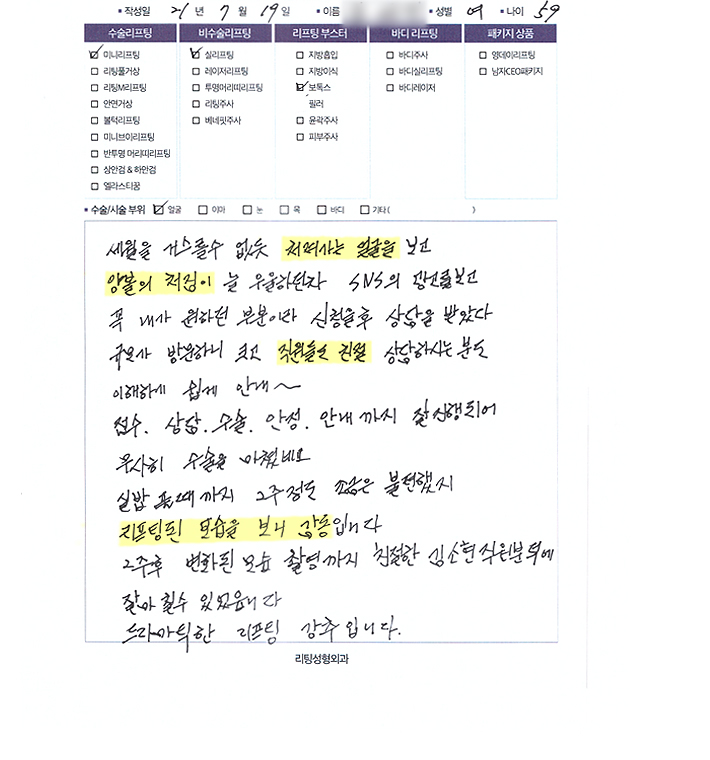 작성일 21 년 7 월 19 일 이름 성별 여 나이 59
수술리프팅 비수술리프팅 리프팅 부스터 바디 리프팅 패키지 상품
미니리프팅 실리프팅 지방흡입 바디주사 영데이리프팅
리팅풀거상 레이저리프팅 지방이식 바디실리프팅 남자CEO패키지
리팅M리프팅 투명머리띠리프팅 보톡스 바디레이저
안면거상 리팅주사 필러
볼턱리프팅 베네핏주사 윤곽주사
미니브이리프팅 피부주사
반투명 머리띠리프팅
상안검 & 하안검
엘라스티꿈
수술/시술 부위 얼굴 이마 눈 목 바디 기타( )
세월을 거스를수 없듯 처져가는 얼굴을 보고
양볼의 처짐이 늘 우울하던차 SNS의 광고를보고
꼭 내가 원하던 부분이라 신청을후 상담을 받았다
규모가 방문하니 크고 직원들도 친절 상담하시는분도
이해하게 쉽게 안내~
접수. 상담. 수술. 안정. 안내까지 잘진행되어
무사히 수술을 마쳤네요
실밥 풀때까지 2주정도 조금은 불편했지
리프팅된 모습을 보니 감동입니다
2주후 변화된 모습 촬영까지 친절한 김소현직원분덕에
잘마 칠수 있었읍니다
드라마틱한 리프팅 강추입니다.
리팅성형외과